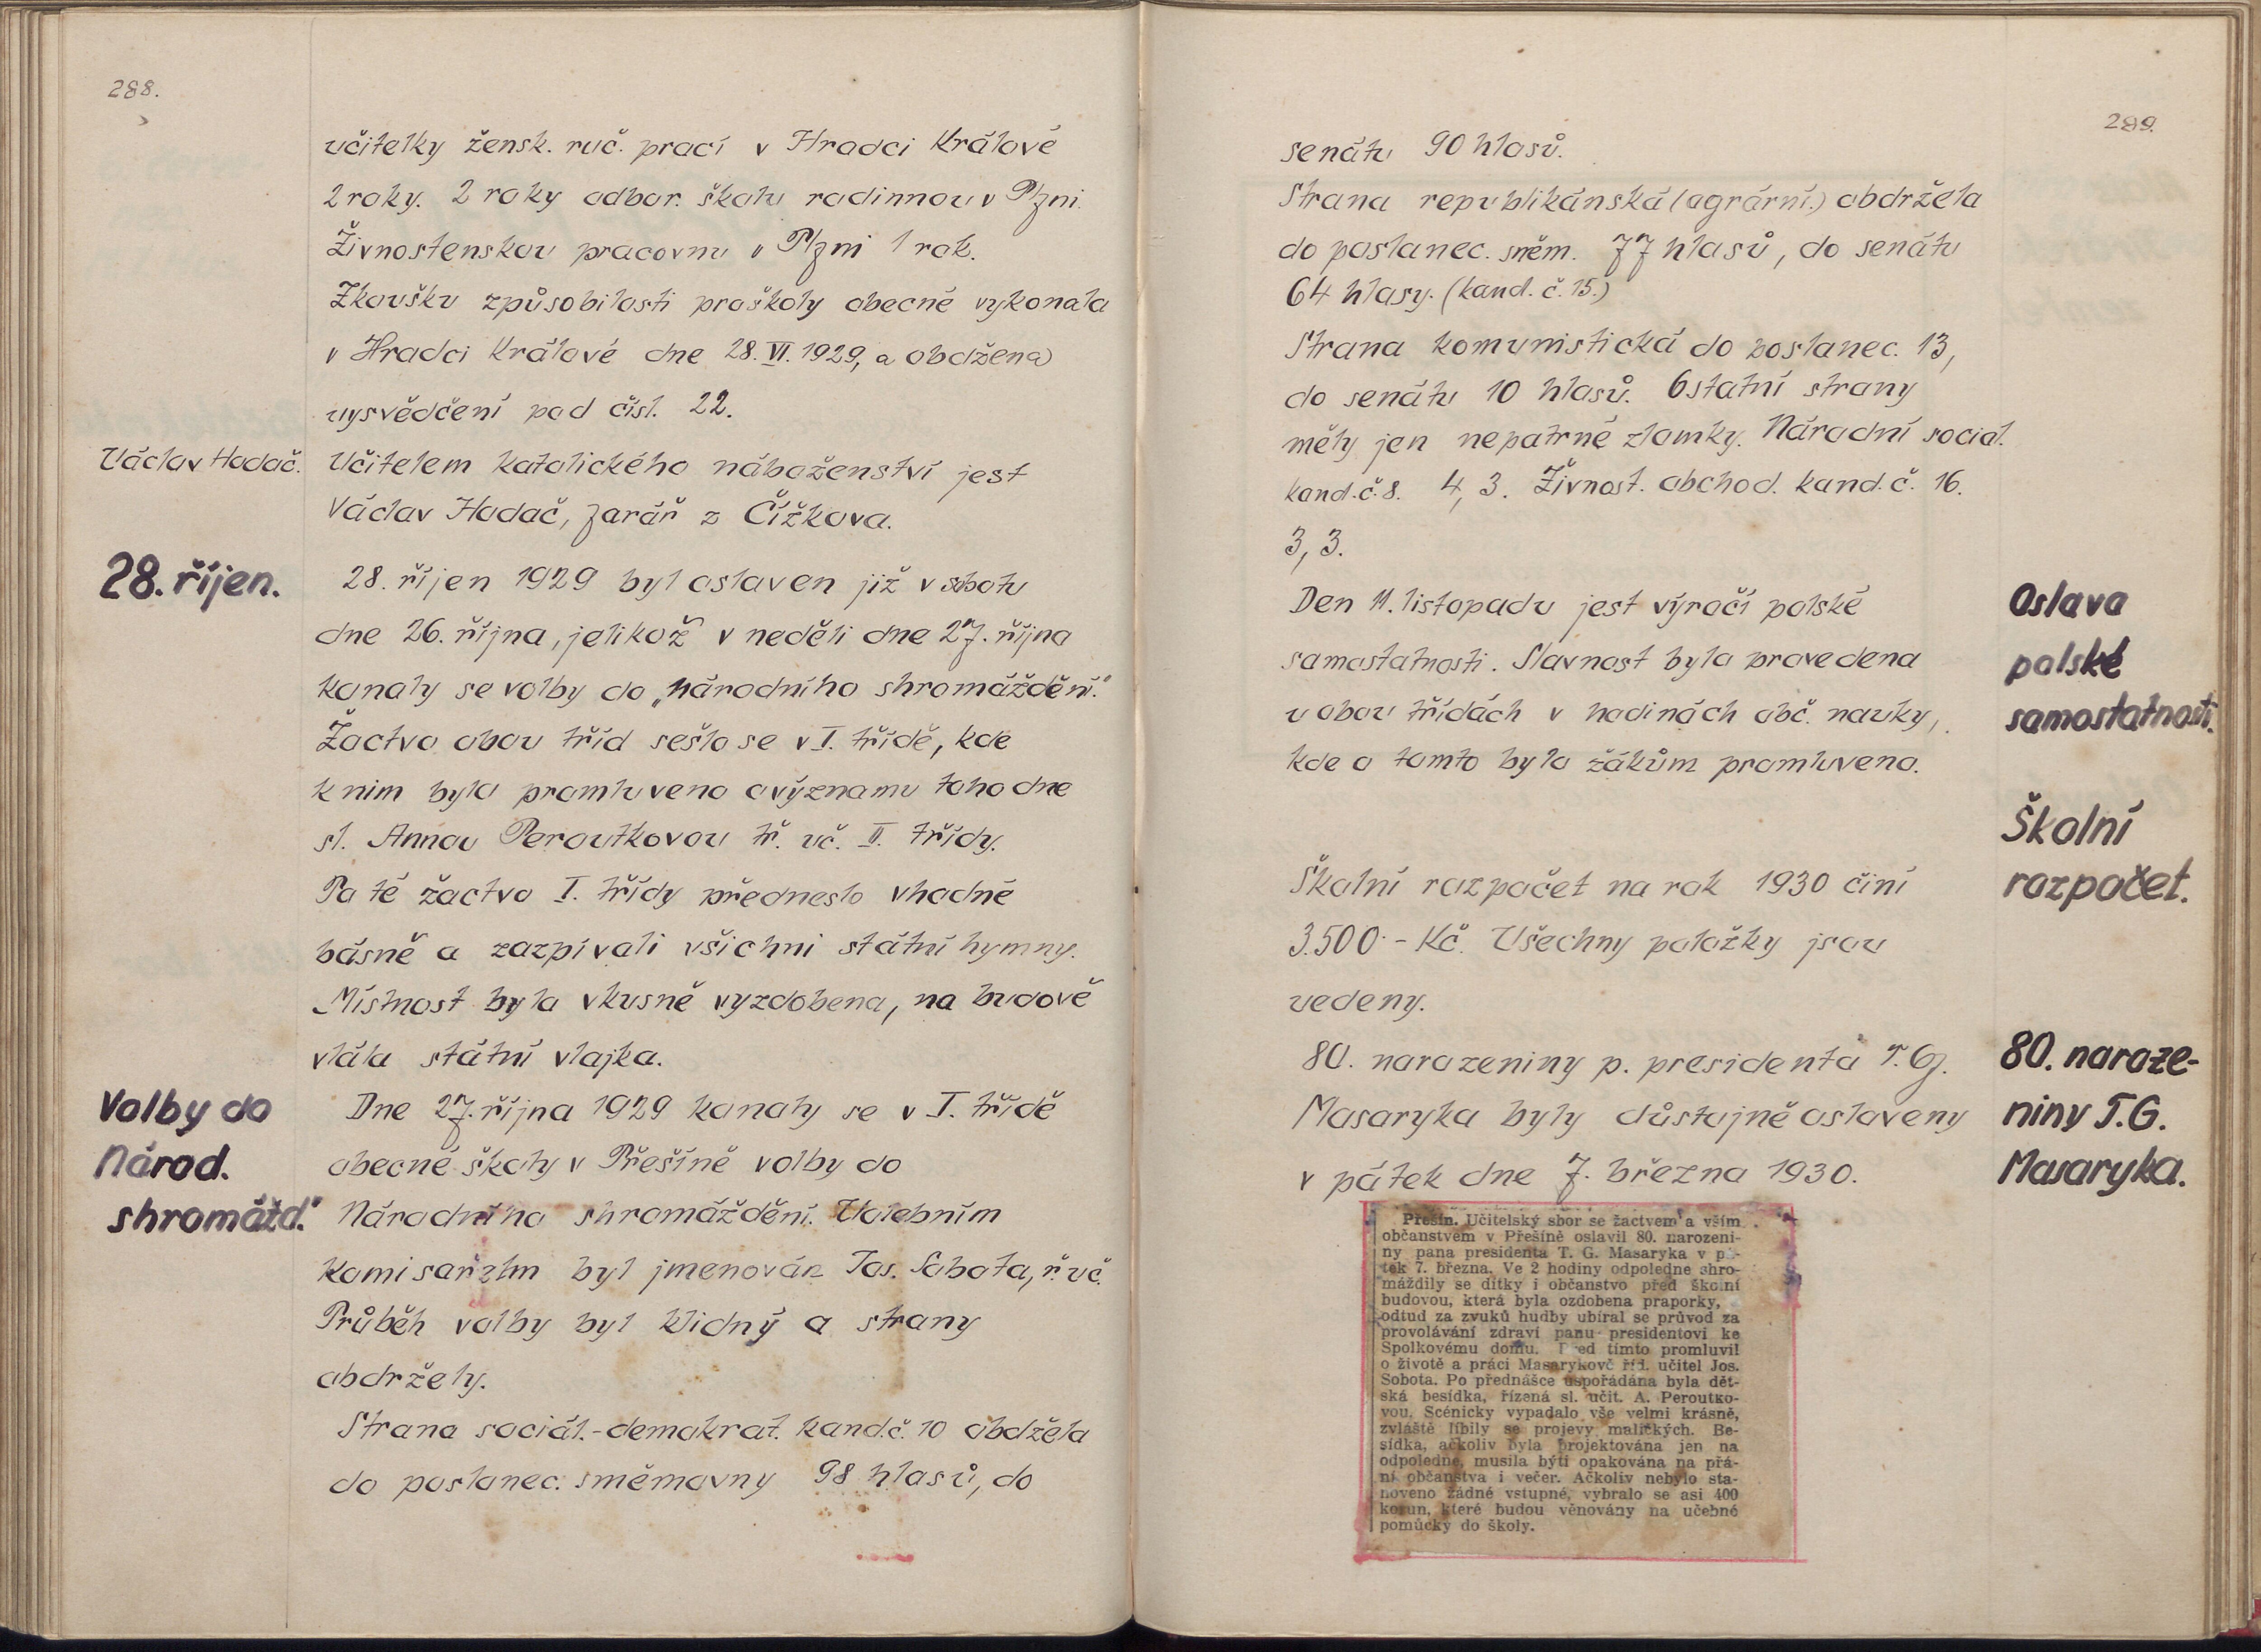 288.
učitelky žensk. ruč. prací v Hradci Králové
2 roky. 2 roky odbor. školu rodinnou v Plzni.
Živnostenskou pracovnu v Plzni 1 rok.
Zkoušku způsobilosti proškoly obecné vykonala
v Hradci Králové dne 28. VI. 1929, a obdžena
vysvědčení pod čísl. 22.
Václav Hodač.
Učitelem katolického náboženství jest
Václav Hodač, farář z Čížkova.
28. říjen.
28. říjen 1929 byl oslaven již v sobotu
dne 26. října, jelikož v neděli dne 27. října
konaly se volby do „Národního shromáždění."
Žactvo obou tříd sešlo se v I. třídě, kde
k nim bylo promluveno o významu toho dne
sl. Annou Peroutkovou tř. uč. II. třídy.
Po té žactvo I. třídy předneslo vhodné
básně a zazpívali všichni státní hymny.
Místnost byla vkusně vyzdobena, na budově
vlála státní vlajka.
Volby do
Národ.
shromážd."
Dne 27. října 1929 konaly se v I. třídě
obecné školy v Přešíně volby do
Národního shromáždění. Volebním
komisařem byl jmenován Jos. Sobota, ř. uč.
Průběh volby byl klidný a strany
obdržely.
Strana sociál.-demokrat. kand.č. 10 obdžela
do poslanec. směmovny 98 hlasů, do
289.
senátu 90 hlasů.
Strana republikánská (agrární.) obdržela
do poslanec. sněm. 77 hlasů, do senátu
64 hlasy. (kand. č. 15.)
Strana komunistická do poslanec. 13,
do senátu 10 hlasů. Ostatní strany
měly jen nepatrné zlomky. Národní social.
kand. č. 8. 4, 3. Živnost. obchod. kand. č. 16.
3, 3.
Oslava
polské
samostatnosti.
Den 11. listopadu jest výročí polské
samostatnosti. Slavnost byla provedena
v obou třídách v hodinách obč. nauky,
kde o tomto bylo žákům promluveno.
Školní
rozpočet.
Školní rozpočet na rok 1930 činí
3.500·- Kč. Všechny položky jsou
vedeny.
80. naroze-
niny T.G.
Masaryka.
80. narozeniny p. presidenta T. G.
Masaryka byly důstojně oslaveny
v pátek dne 7. března 1930.
Přešín. Učitelský sbor se žactvem a vším
občanstvem v Přešíně oslavil 80. narozeni-
ny pana presidenta T. G. Masaryka v pá-
tek 7. března. Ve 2 hodiny odpoledne shro-
máždily se dítky i občanstvo před školní
budovou, která byla ozdobena praporky,
odtud za zvuků hudby ubíral se průvod za
provolávání zdraví panu presidentovi ke
Spolkovému domu. Před tímto promluvil
o životě a práci Masarykově říd. učitel Jos.
Sobota. Po přednášce uspořádána byla dět-
ská besídka, řízená sl. učit. A. Peroutko-
vou. Scénicky vypadalo vše velmi krásně,
zvláště líbily se projevy maličkých. Be-
sídka, ačkoliv byla projektována jen na
odpoledne, musila býti opakována na přá-
ní občanstva i večer. Ačkoliv nebylo sta-
noveno žádné vstupné, vybralo se asi 400
korun, které budou věnovány na učebné
pomůcky do školy.